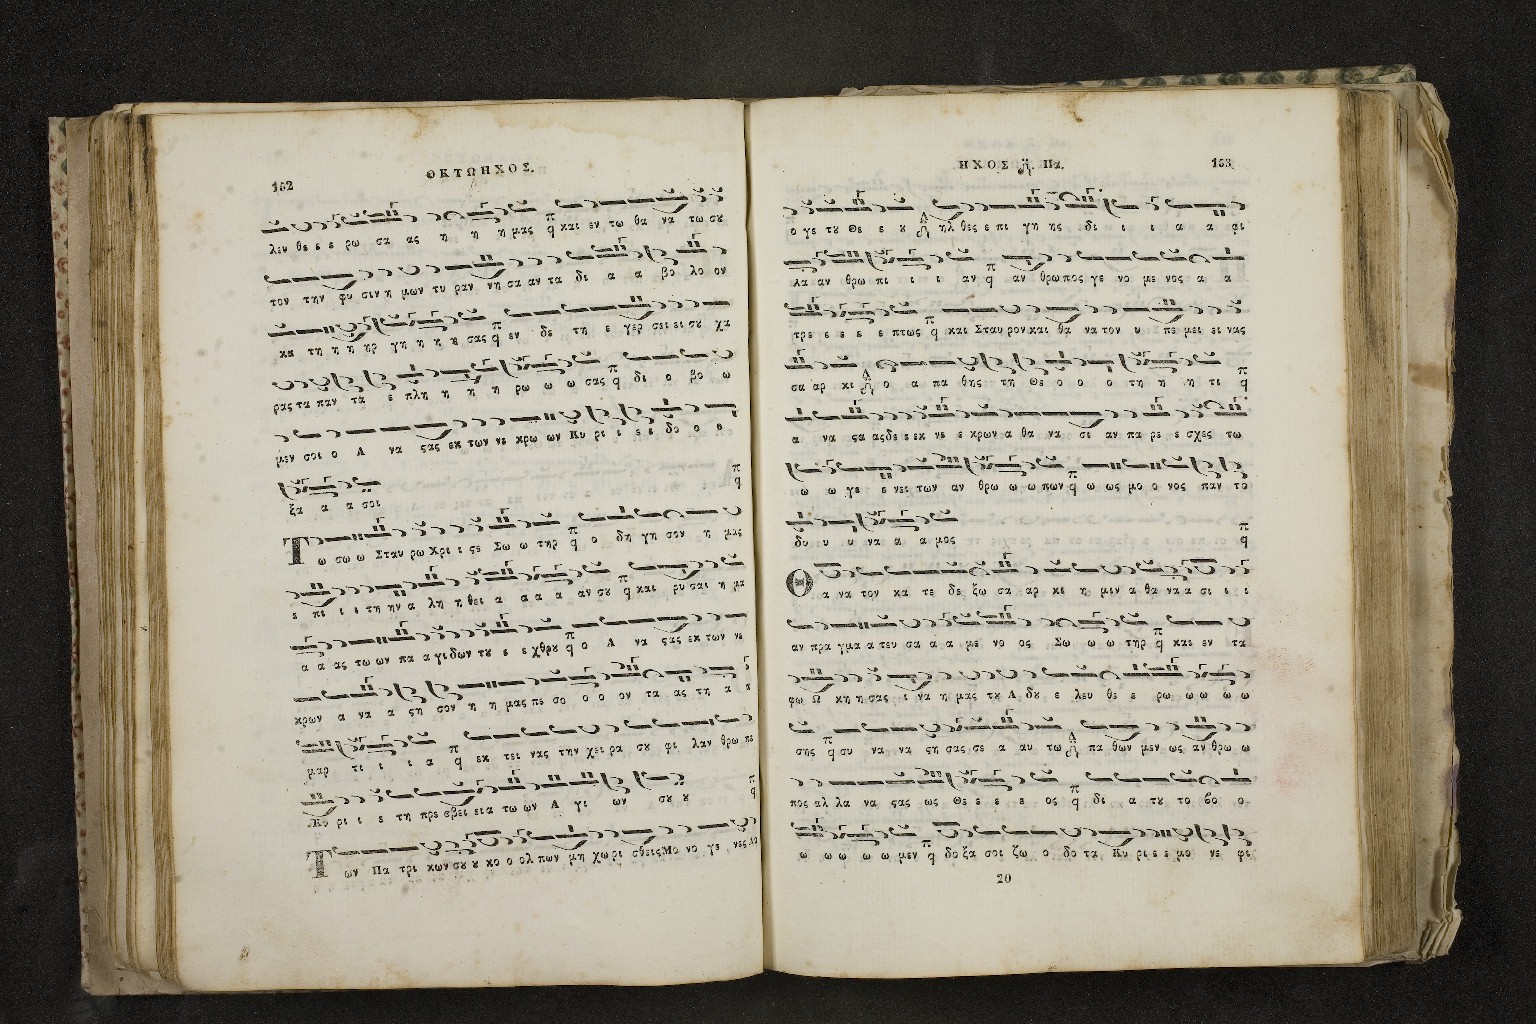 152
ΟΚΤΩΗΧΟΣ.
λευ θε ε ε ρω σα ας η η η μας και εν τω θα να τω σου
τον την φυ σιν η μων τυ ραν νη σα αν τα δι α α βο λο ον
κα τη η η ηρ γη η κ ε σας εν δε τη ε γερ σει ει σου χα
ρας τα παν τα ε πλη η η η ρω ω ω σας δι ο βο ω
μεν σοι ο Α να ςας εκ των νε κρω ων Κυ ρι ι ε ε δο ο ο
ξα α α σοι
Τ ω σω ω Σταυ ρω Χρι ι ςε Σω ω τηρ ο δη γη σον η μας
ε πι ι ι τη ην α λη η θει α α α α αν σου και ρυ σαι η μα
α α ας τω ων πα α γι δων του ε ε χθρου ο Α να ςας εκ των νε
κρων α να α ςη σον η η μας πε σο ο ο ον τα ας τη α α
μαρ τι ι ι α εκ τει νας την χει ρα σου φι λαν θρω πε
Κυ ρι ι ε τη πρε σβει ει α τω ων Α γι ων σου ου
Τ ων Πα τρι κων σου ου κο ο ολ πων μη χω ρι σθεις Μο νο γε νες λο
ΗΧΟΣ η. Πλ.
153
ο γε του Θε ε ου ηλ θες ε πι γη ης δι ι ι α α φι
λα αν θρω πι ι ι αν αν θρω πος γε νο με νος α α
τρε ε ε ε ε πτως και Σταυ ρον και θα να τον υ πε μει ει νας
σα αρ κι ο α πα θης τη Θε ο ο ο τη η η τι
α να ςα ας δε ε εκ νε ε κρων α θα να σι αν πα ρε ε σχες τω
ω ω γε ε νει των αν θρω ω ω πων ω ως μο ο νος παν το
δυ υ υ να α α μος
Θ α να τον κα τε δε ξω σα αρ κι η μιν α θα να α σι ι ι
αν πρα γμα α τευ σα α α με νο ος Σω ω ω τηρ και εν τα
φω Ω κη η σας ι να η μας του Α δου ε λευ θε ε ρω ω ω ω ω
σης συ να να ςη σας σε α αυ τω πα θων μεν ως αν θρω ω
πος αλ λα να ςας ως Θε ε ε ε ε ος δι α του το βο ο
ω ω ω ω ω μεν δο ξα σοι ζω ο δο τα Κυ ρι ε ε μο νε φι
20